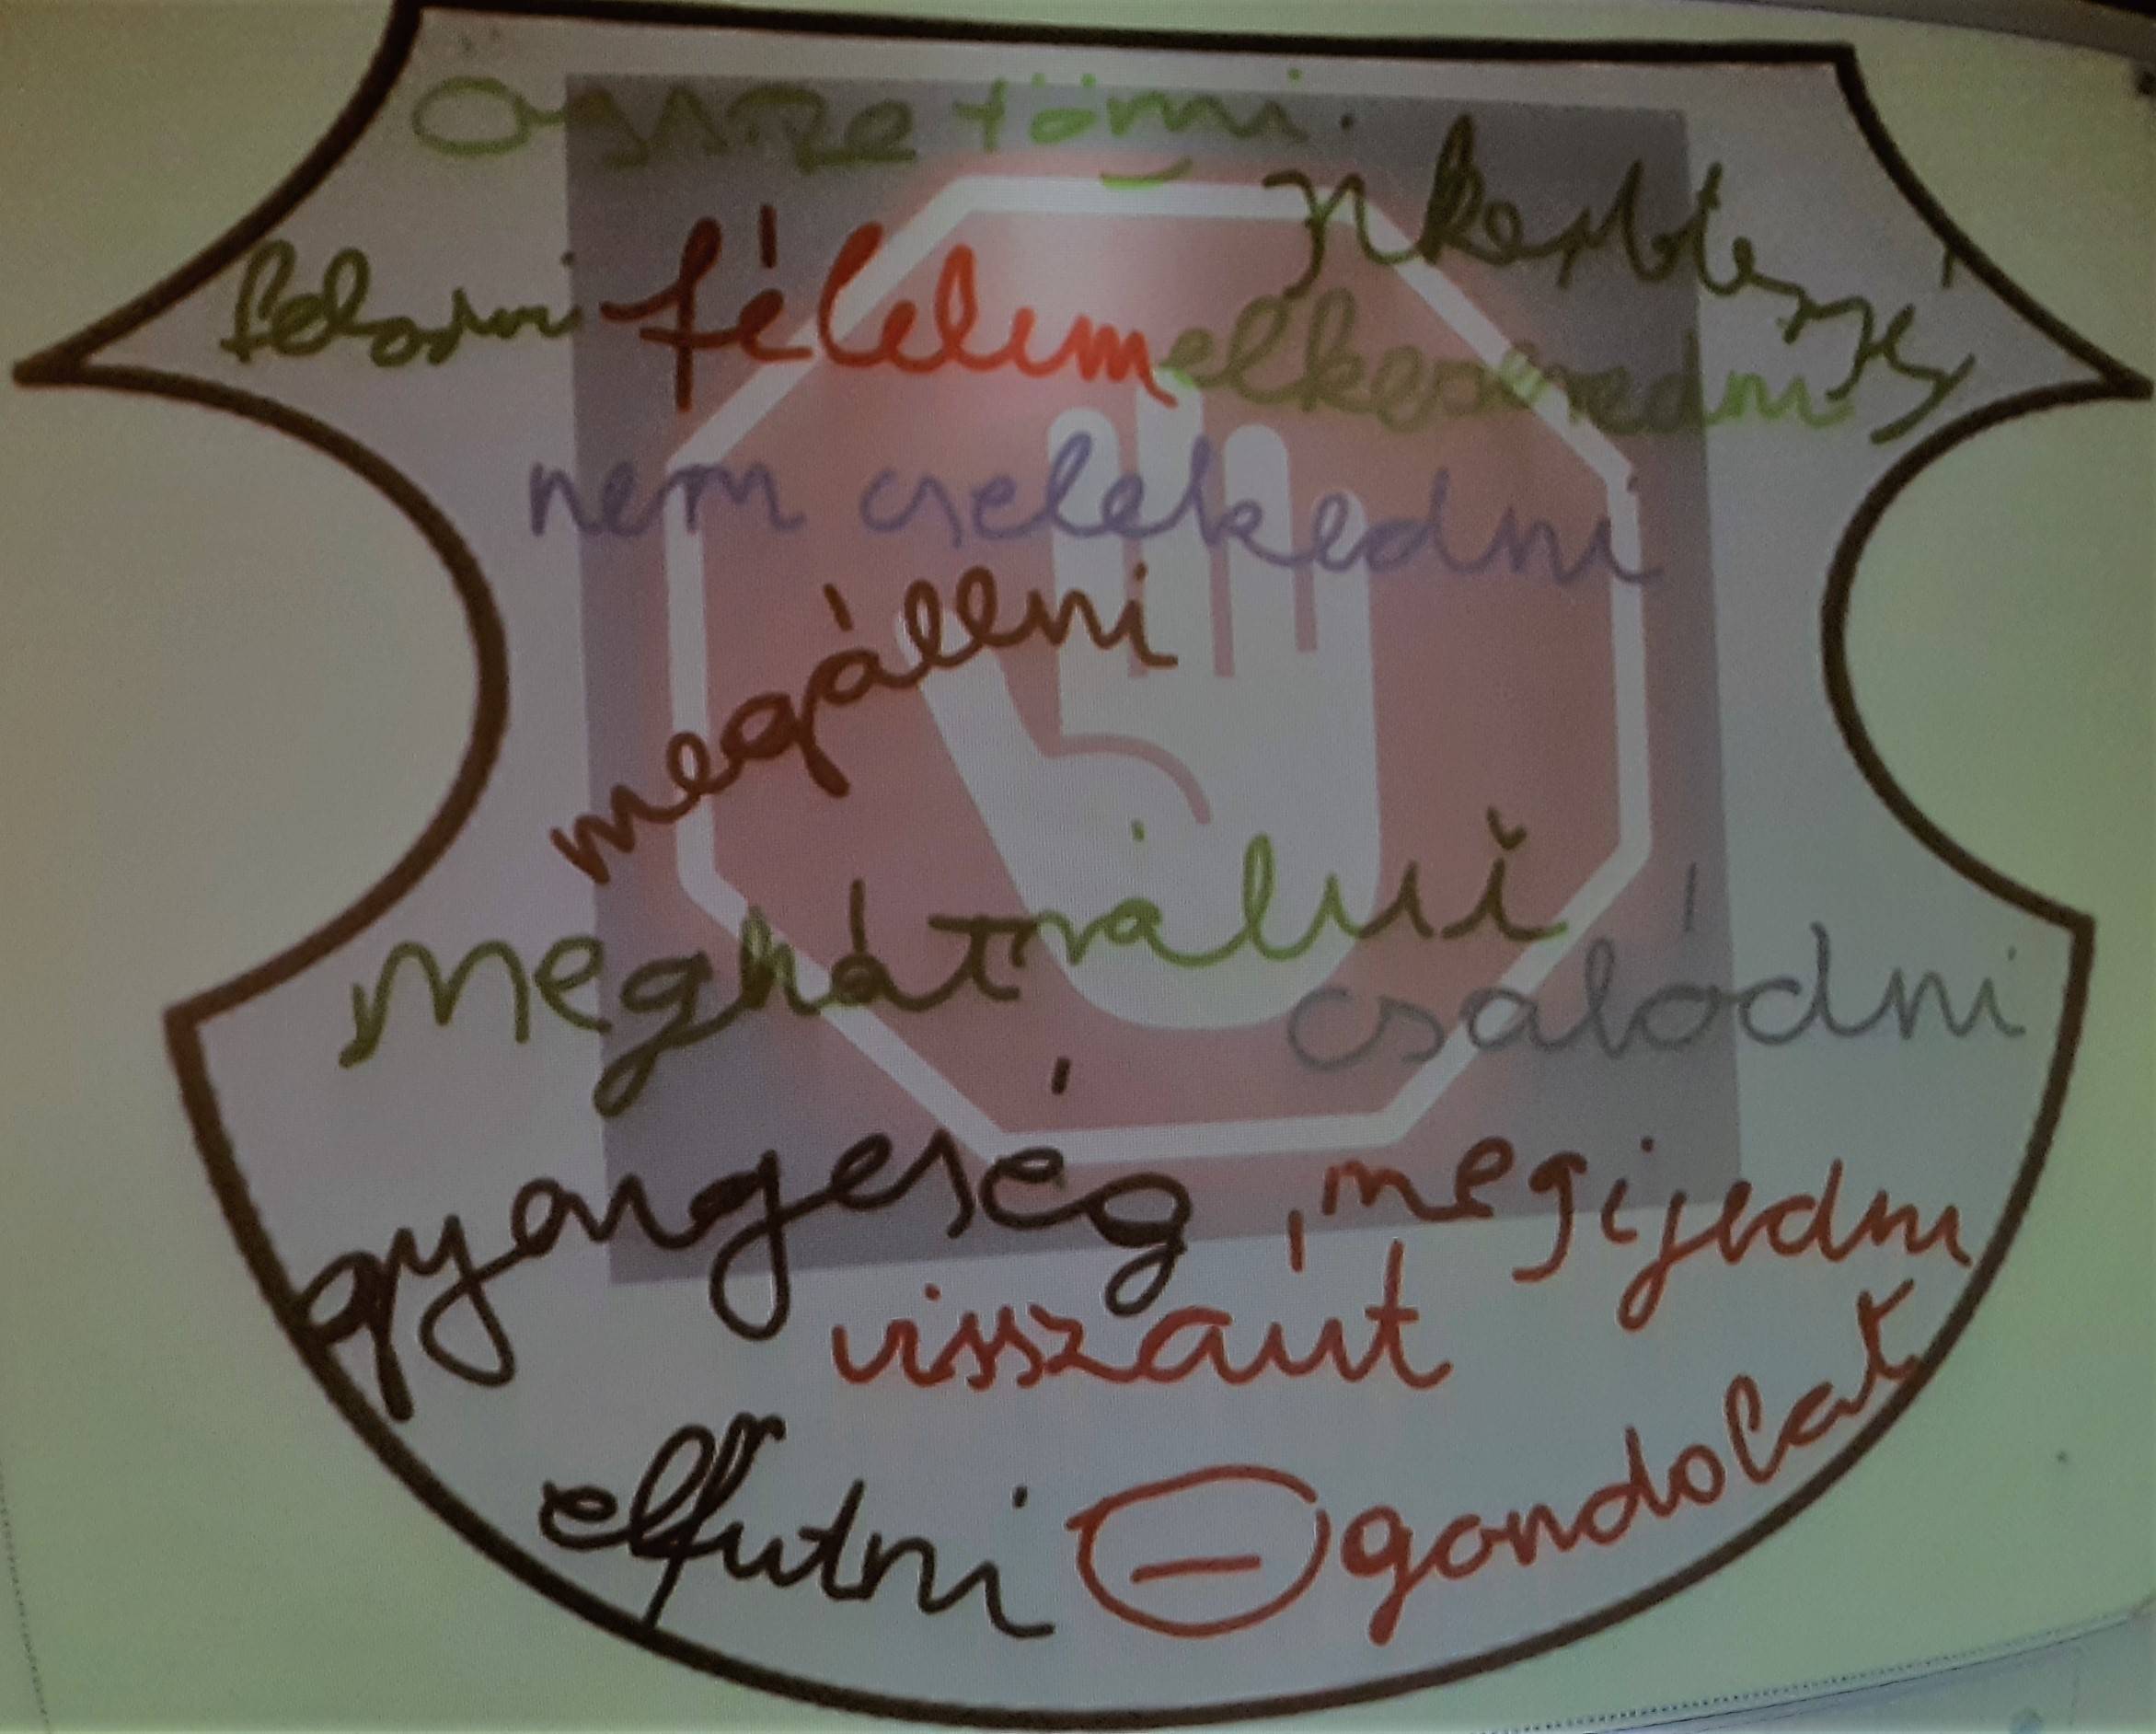 össze törni.
feladni félelem elkeseredni
nem cselekedni
megállni
meghátrálni
csalódni
gyengeség, megijedni
visszaút
elfutni ⊖ gondolat